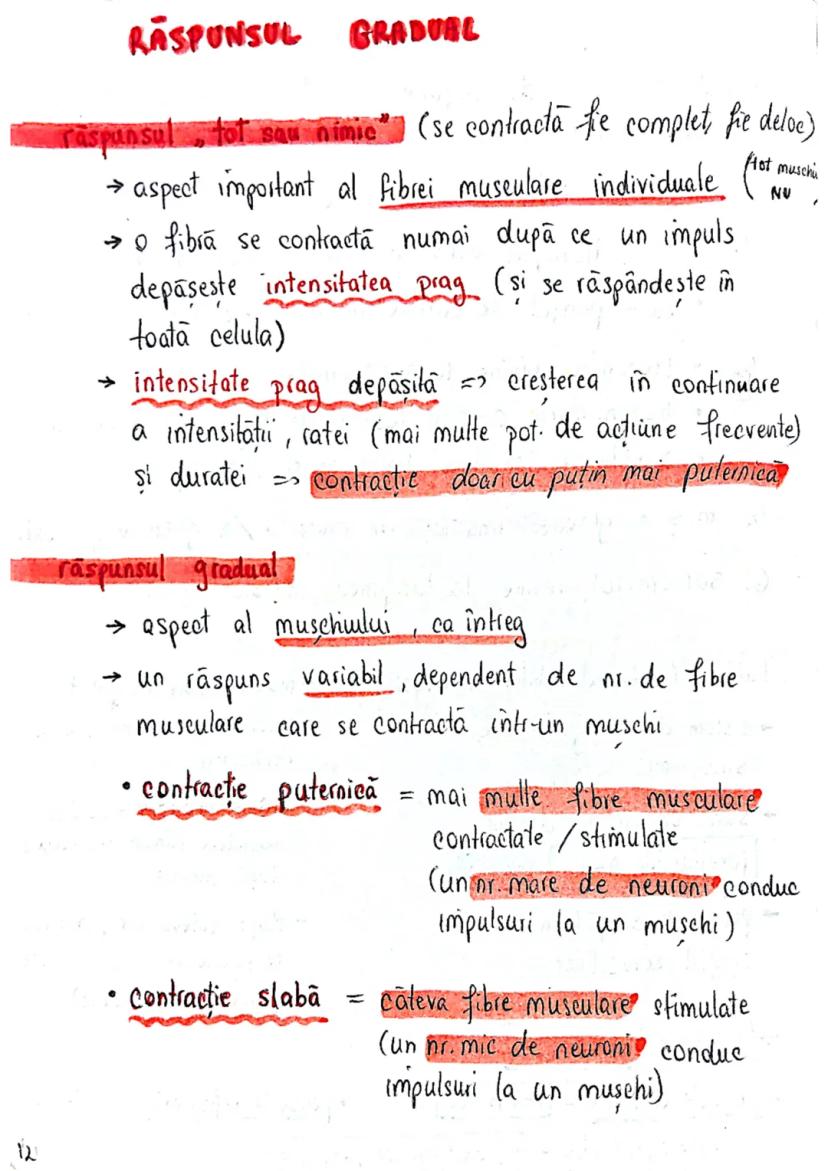 RĂSPUNSUL GRADUAL
răspunsul „tot sau nimic” (se contractă fie complet, fie deloc)
→ aspect important al fibrei musculare individuale (tot muschi
NU
→ o fibră se contractă numai după ce un impuls
depășește intensitatea prag (și se răspândește în
toată celula)
→ intensitate prag depășită => creșterea în continuare
a intensității, ratei (mai multe pot. de acțiune frecvente)
și duratei => contracție doar cu puțin mai puternică
răspunsul gradual
→ aspect al mușchiului, ca întreg
→ un răspuns variabil, dependent de nr. de fibre
musculare care se contractă într-un mușchi
• contracție puternică = mai multe fibre musculare
contractate / stimulate
(un nr. mare de neuroni conduc
impulsuri la un mușchi)
• contracție slabă = câteva fibre musculare stimulate
(un nr. mic de neuroni conduc
impulsuri la un mușchi)
12